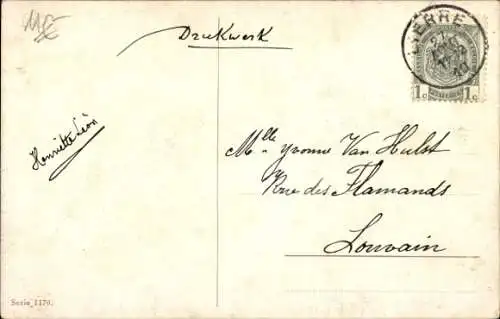 Drukwerk
LIERRE
1c 1c
Henriette Léon
Mlle Yvonne Van Hulst
Rue des Flamands
Louvain
Serie 1170.